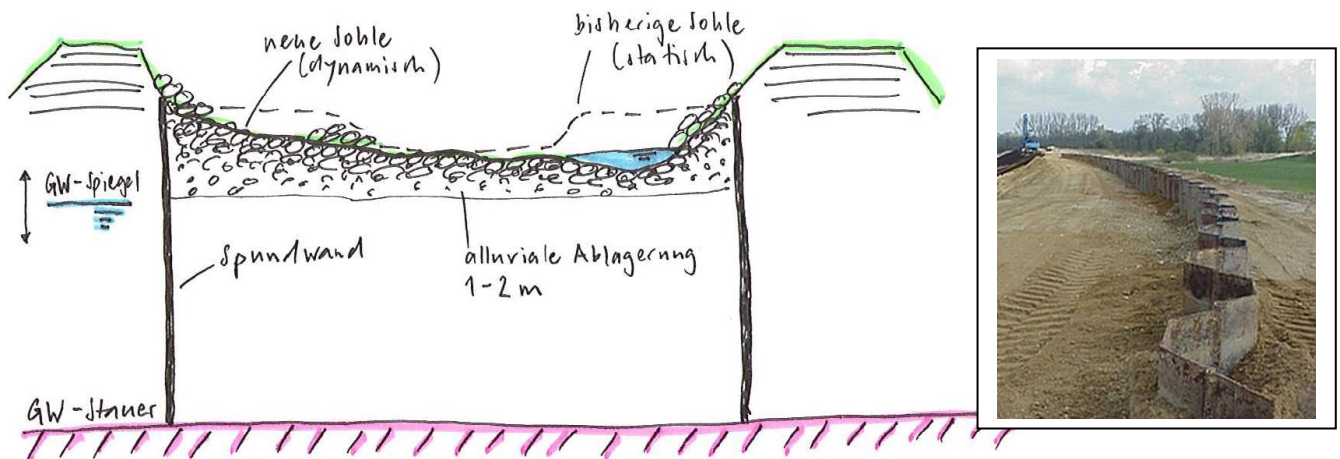 neue Sohle
(dynamisch)
bisherige Sohle
(statisch)
GW-Spiegel
Spundwand
alluviale Ablagerung
1-2 m
GW-Stauer